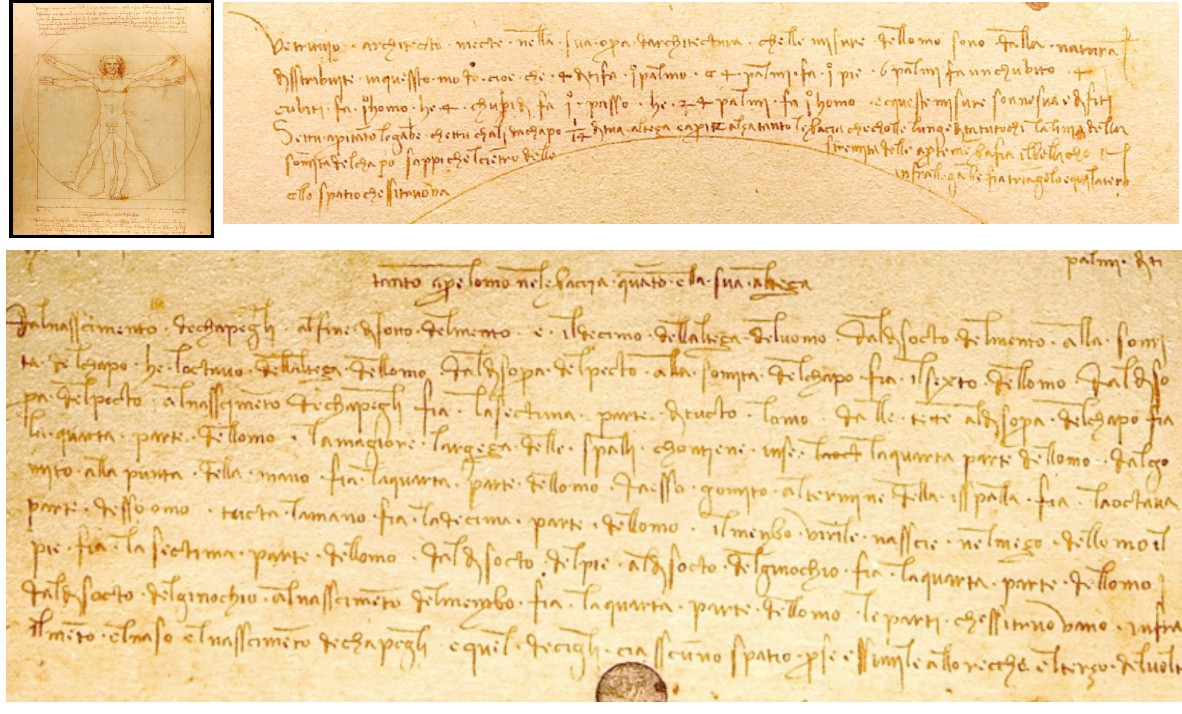 Vetruvio · architecto · mecte · nella · sua · opa · darchitectura · chelle misure dellomo sono dalla · natura
disstribuite inquessto modo · cioe · che · 4 · diti fa · 1 palmo · e 4 · palmi · fa · 1 pie · 6 palmi fa unchubito · 4
cubiti · fa · 1 homo · he 4 · chubidi fa 1 · passo · he · 24 palmi · fa 1 homo · ecqueste misure sonnesua edifiti
Settu apri tanto legabe chettu chali dachapo 1/14 ditua altega e apri e alza tanto lebracia che cholle lunge dita tu tochi lalinia della
somita delchapo sappi chelcientro delle stremita delle aperte menbra fia ilbellicho
ello spatio chessitruova infrallegabe fia triagolo equilatero
palmi · diti
tanto aprelomo nele braccia · quato · ella · sua · altega
Dalnasscimento · dechapegli · alfine disotto · delmento · e · ildecimo · dellaltega · deluomo · Daldisocto delmento · alla · somi
ta · delchapo · he · loctavo · dellaltega · dellomo · Daldisopa · delpecto · alla · somita · delchapo · fia · ilsexto · dellomo · Daldiso
pa · delpecto · alnasscimeto · dechapegli · fia · lasectima · parte · ditucto · lomo · dalle · tette · aldisopa · delchapo fia
la · quarta · parte · dellomo · lamagiore · largega · delle · spalli · chontiene · inse · laquarta parte dellomo · dalgo
mito · alla punta · della · mano · fia · laquarta · parte · dellomo · Daesso · gomito · altermine della · isspalla · fia · laoctava
parte · dessoomo · tucta · lamano · fia · ladecima · parte · dellomo · ilmenbo · virile · nasscie · nelmego · dellomo il
pie · fia · lasectima · parte · dellomo · daldisocto · delpie · aldisocto · delginochio · fia · laquarta · parte · dellomo
daldisocto · delginochio · alnasscimeto delmembo · fia · laquarta · parte · dellomo leparti · chessitruovano · infra
ilmeto · elnaso elnasscimeto dechapegli equel · decigli · ciasscuno spatio · pse · essimile alloreche elterzo · delvolto